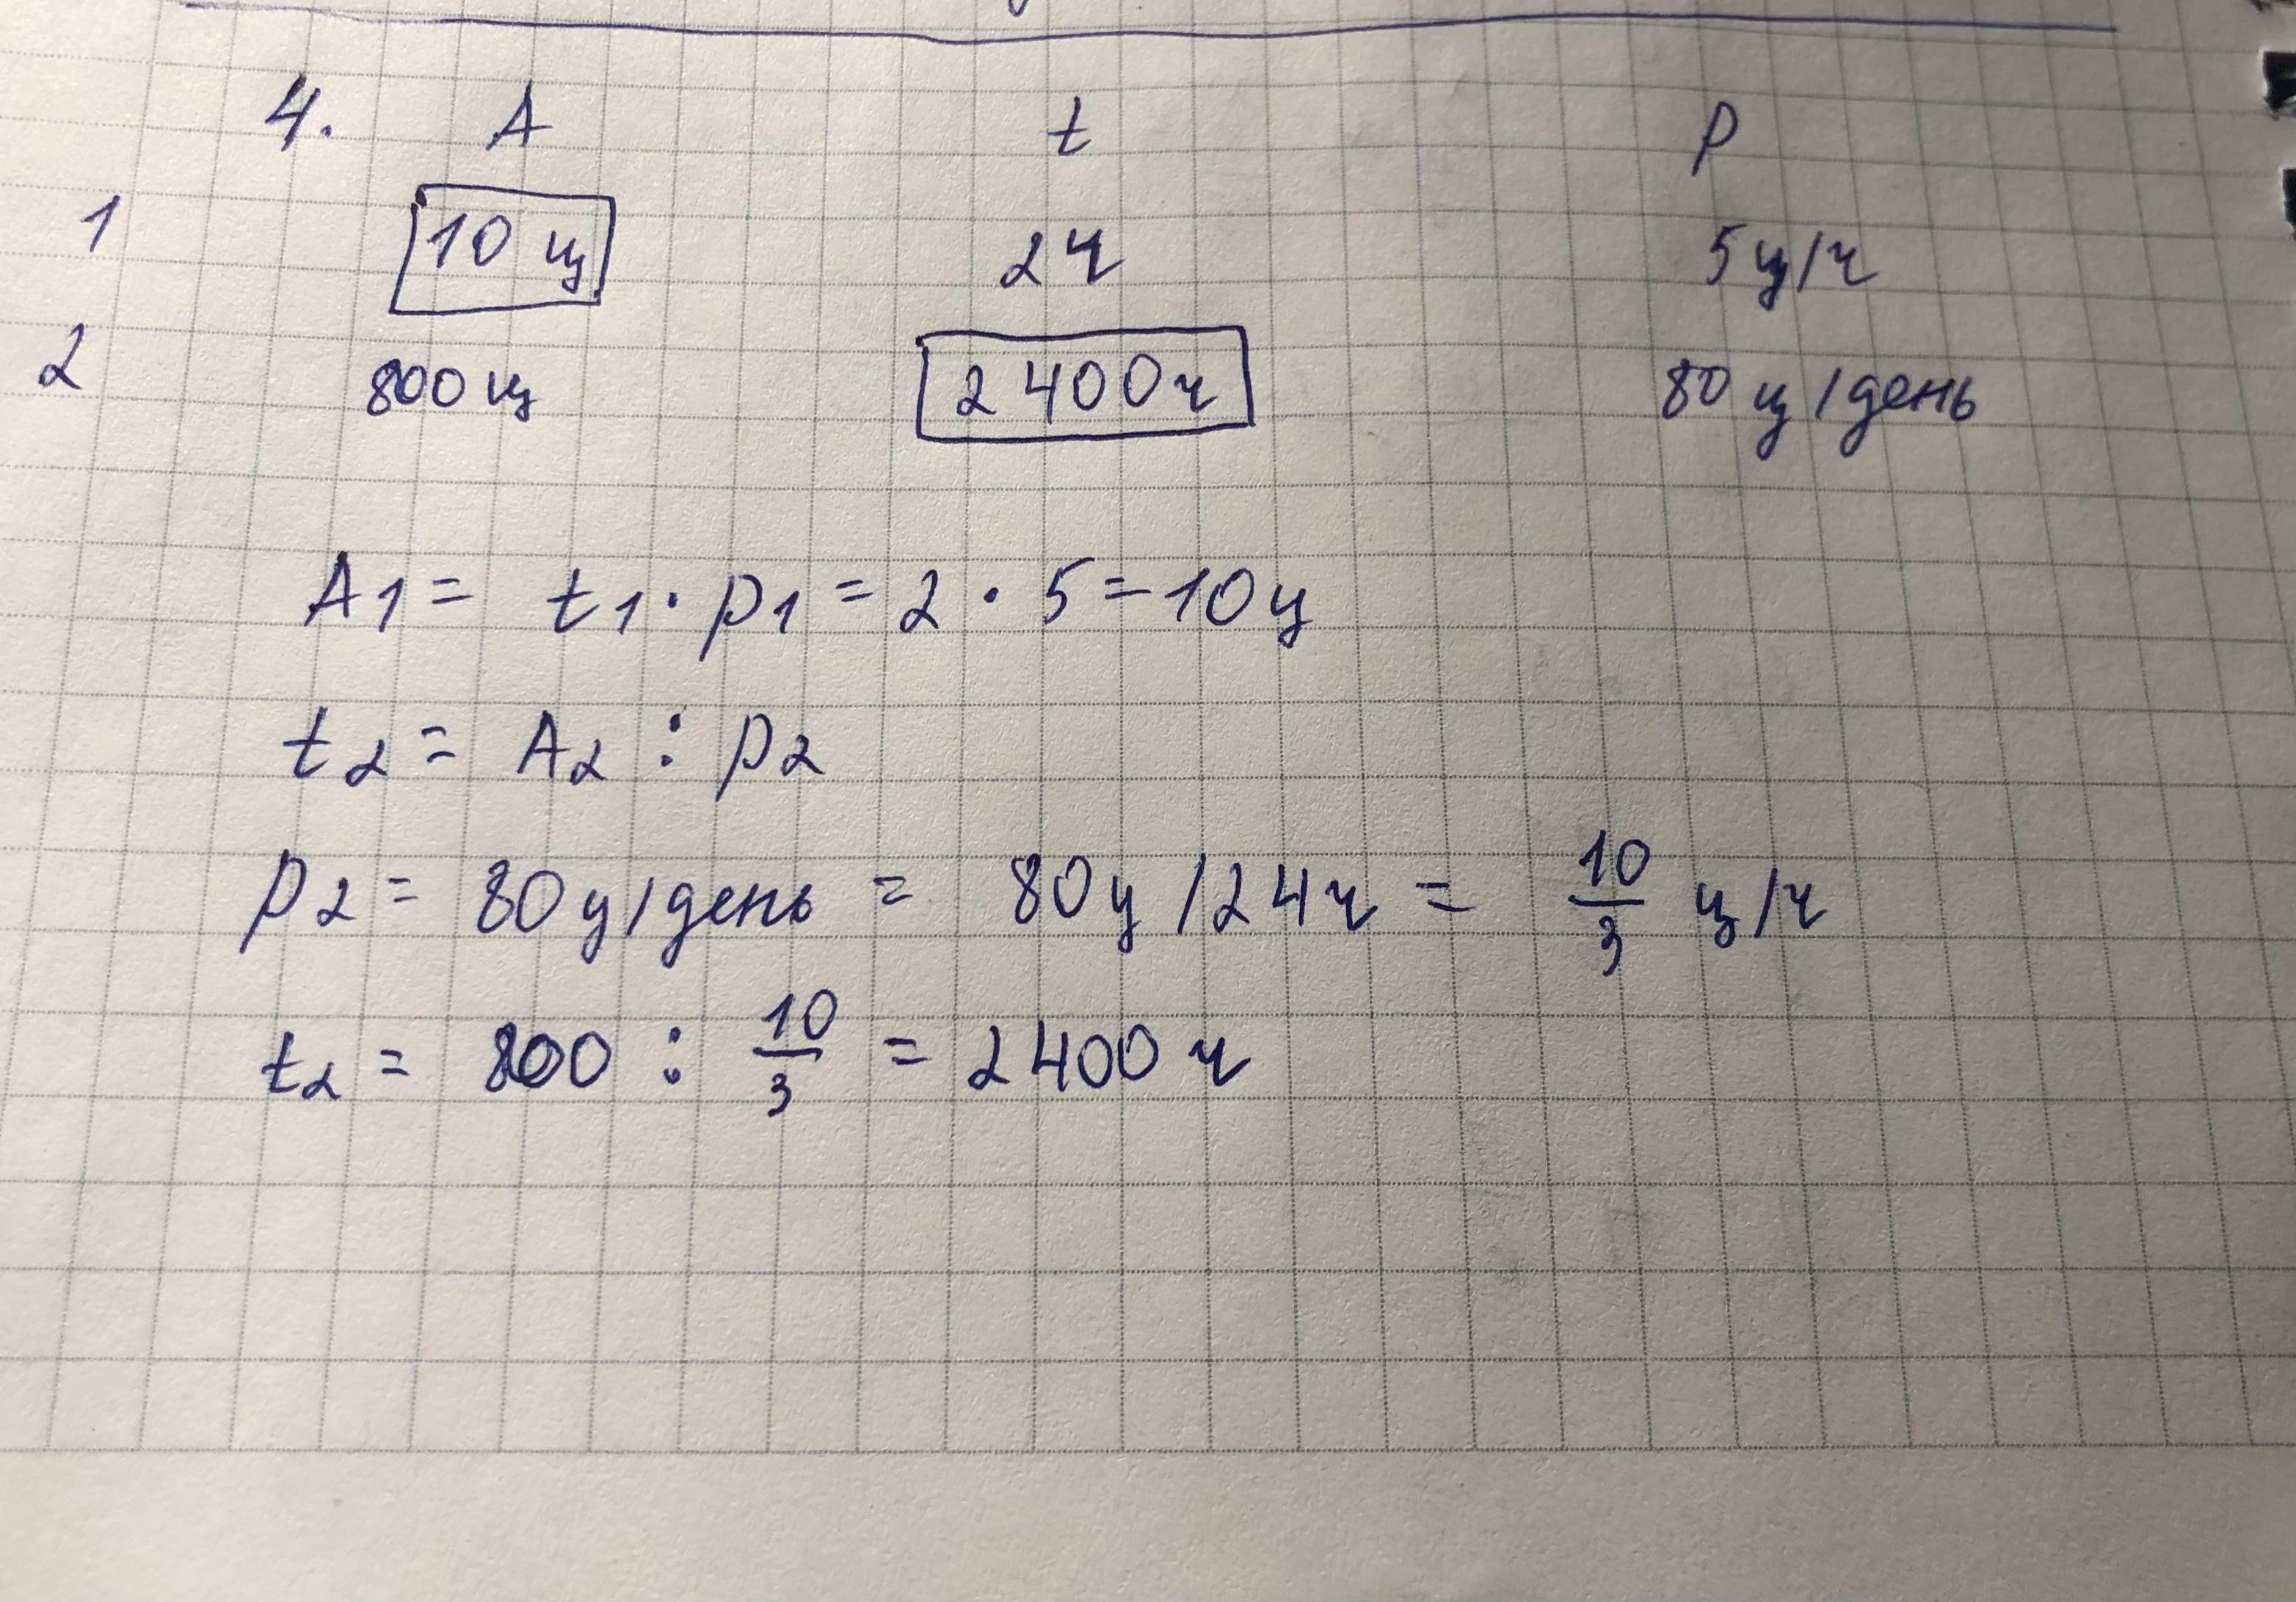 4. A t p
1 10 ц 2 ч 5 ц/ч
2 800 ц 2400 ч 80 ц/день
A1 = t1 · p1 = 2 · 5 = 10 ц
t2 = A2 : p2
p2 = 80 ц/день = 80 ц/24 ч = 10/3 ц/ч
t2 = 800 : 10/3 = 2400 ч